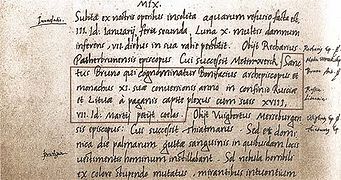 MIX.
Subita ex nostris operibus insolita aquarum refusio facta est
III. Id. Ianuarij, feria secunda Luna X. multis damnum
inferens, VII. diebus in sua valit potestate. Obijt Recharius
Patherbrunensis episcopus. Cui successit Meinwercus. Sanc
tus Bruno qui cognominatur Bonifacius archepiscopus et
monachus XI. suae conversionis anno in confinio Rusciae
et Lituae à paganis capite plexus cum suis XVIII,
VII. Id. Martij petijt coelos. Obijt Wigbertus Mersburgen
sis episcopus: Cui successit Thietmarus. Sed et domi
nica die palmarum gutta sanguinis in quibusdam locis
vestimentis hominum instillabant. Sed nebula horribilis
ex colore stupendo mutatus, mirantibus intuentium
Inundatio.